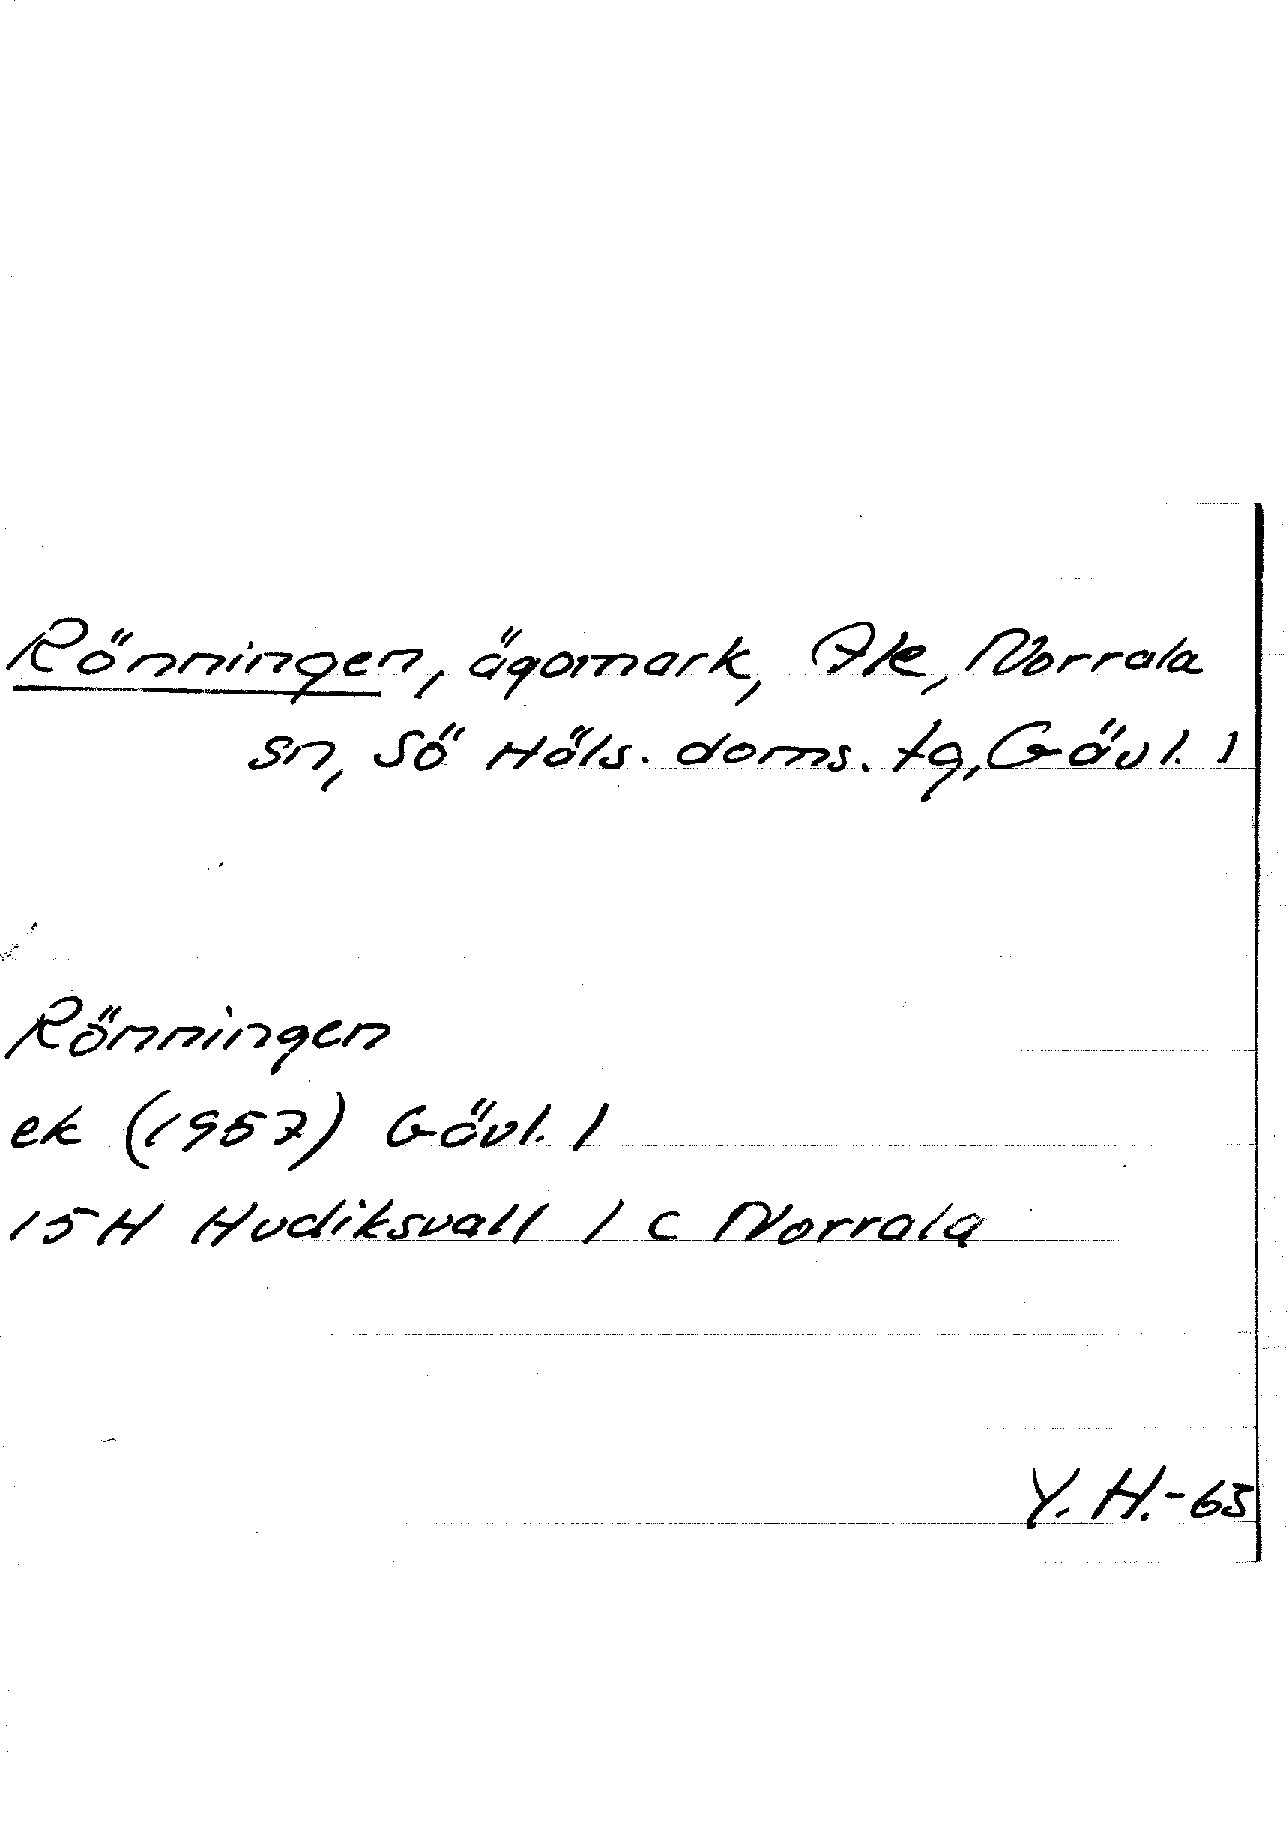 Rönningen, ägomark, Ale, Norrala
sn, Sö Häls. doms. tg, Gävl. l
Rönningen
ek (1957) Gävl. l
15H Hudiksvall 1 c Norrala
Y. H.-65